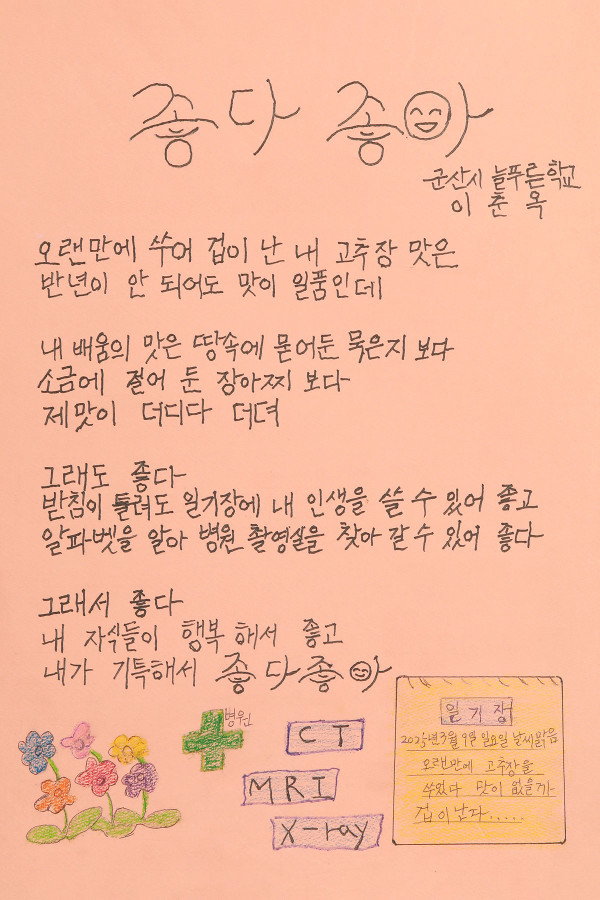 좋다 좋아
군산시 늘푸른학교
이 춘 옥
오랜만에 쑤어 겁이 난 내 고추장 맛은
반년이 안 되어도 맛이 일품인데
내 배움의 맛은 땅속에 묻어둔 묵은지 보다
소금에 절어 둔 장아찌 보다
제맛이 더디다 더뎌
그래도 좋다
받침이 틀려도 일기장에 내 인생을 쓸 수 있어 좋고
알파벳을 알아 병원 촬영실을 찾아 갈 수 있어 좋다
그래서 좋다
내 자식들이 행복 해서 좋고
내가 기특해서 좋다좋아
병원
CT
MRI
X-ray
일기장
2025년 3월 9일 일요일 날씨맑음
오랜만에 고추장을
쑤었다 맛이 없을까
겁이난다.....